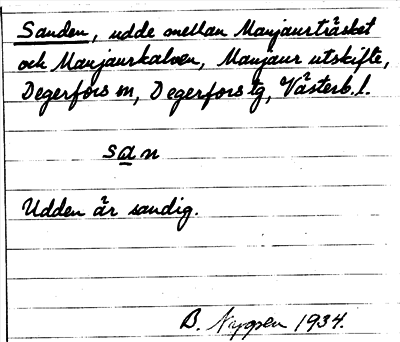 Sanden, udde mellan Manjaurträsket
och Manjaurkalven, Manjaur utskifte,
Degerfors sn, Degerfors tg, Västerb. l.
san
Udden är sandig.
B. 1934.